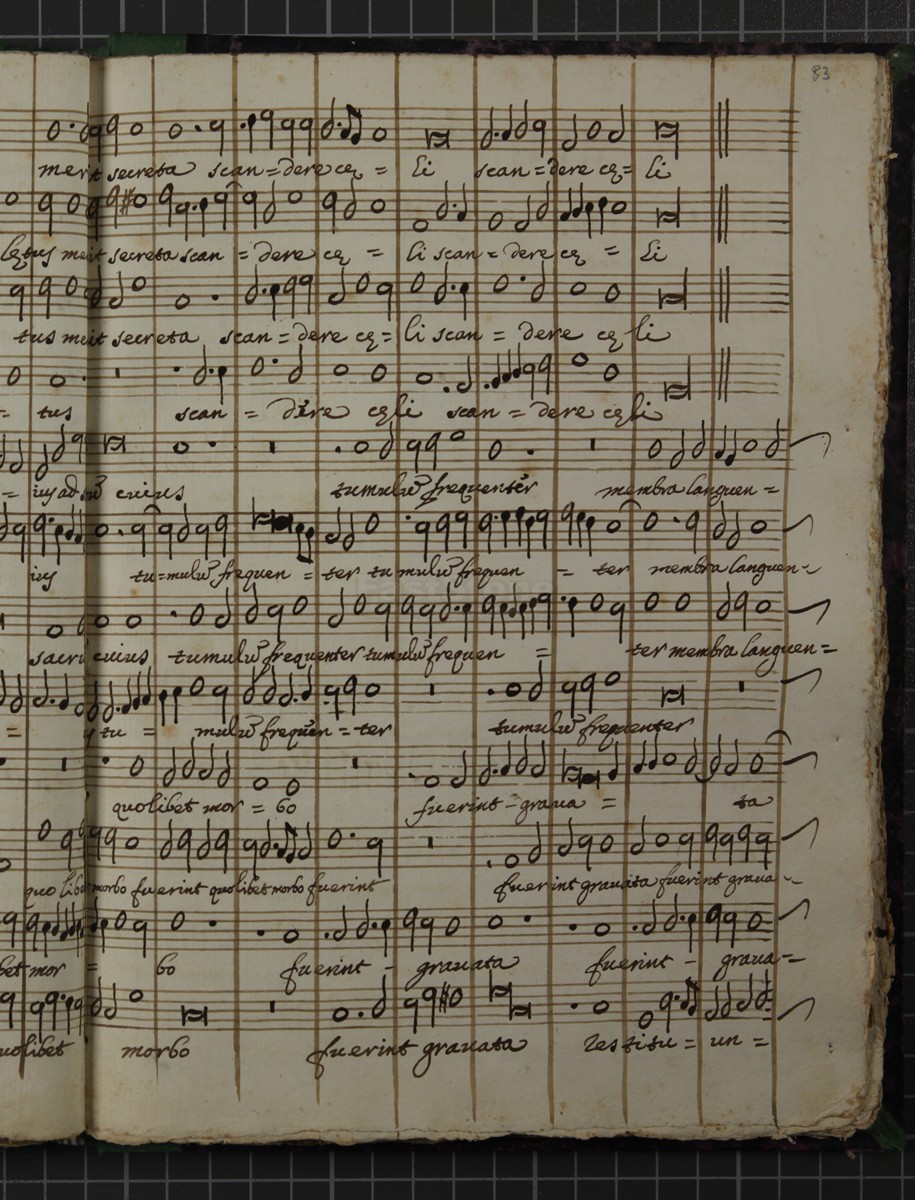 83
merit secreta scan = dere cę = li scan = dere cę = li
lętus meit secreta scan = dere cę = li scan = dere cę = li
tus meit secreta scan = dere cę = li scan = dere cę li
= tus scan = dere cęli scan = dere cęli
= ius ad sū cuius tumulū frequenter membra languen =
ius tu = mulū frequen = ter tu mulū frequen = ter membra languen -
sacri cuius tumulū frequenter tumulū frequen = ter membra languen =
= tu = mulū frequen = ter tumulū frequenter
quolibet mor = bo fuerint - graua = ta
quo libet morbo fuerint quolibet morbo fuerint fuerint grauata fuerint graua -
bet mor = bo fuerint - grauata fuerint - graua =
uolibet morbo fuerint grauata restitu = un =